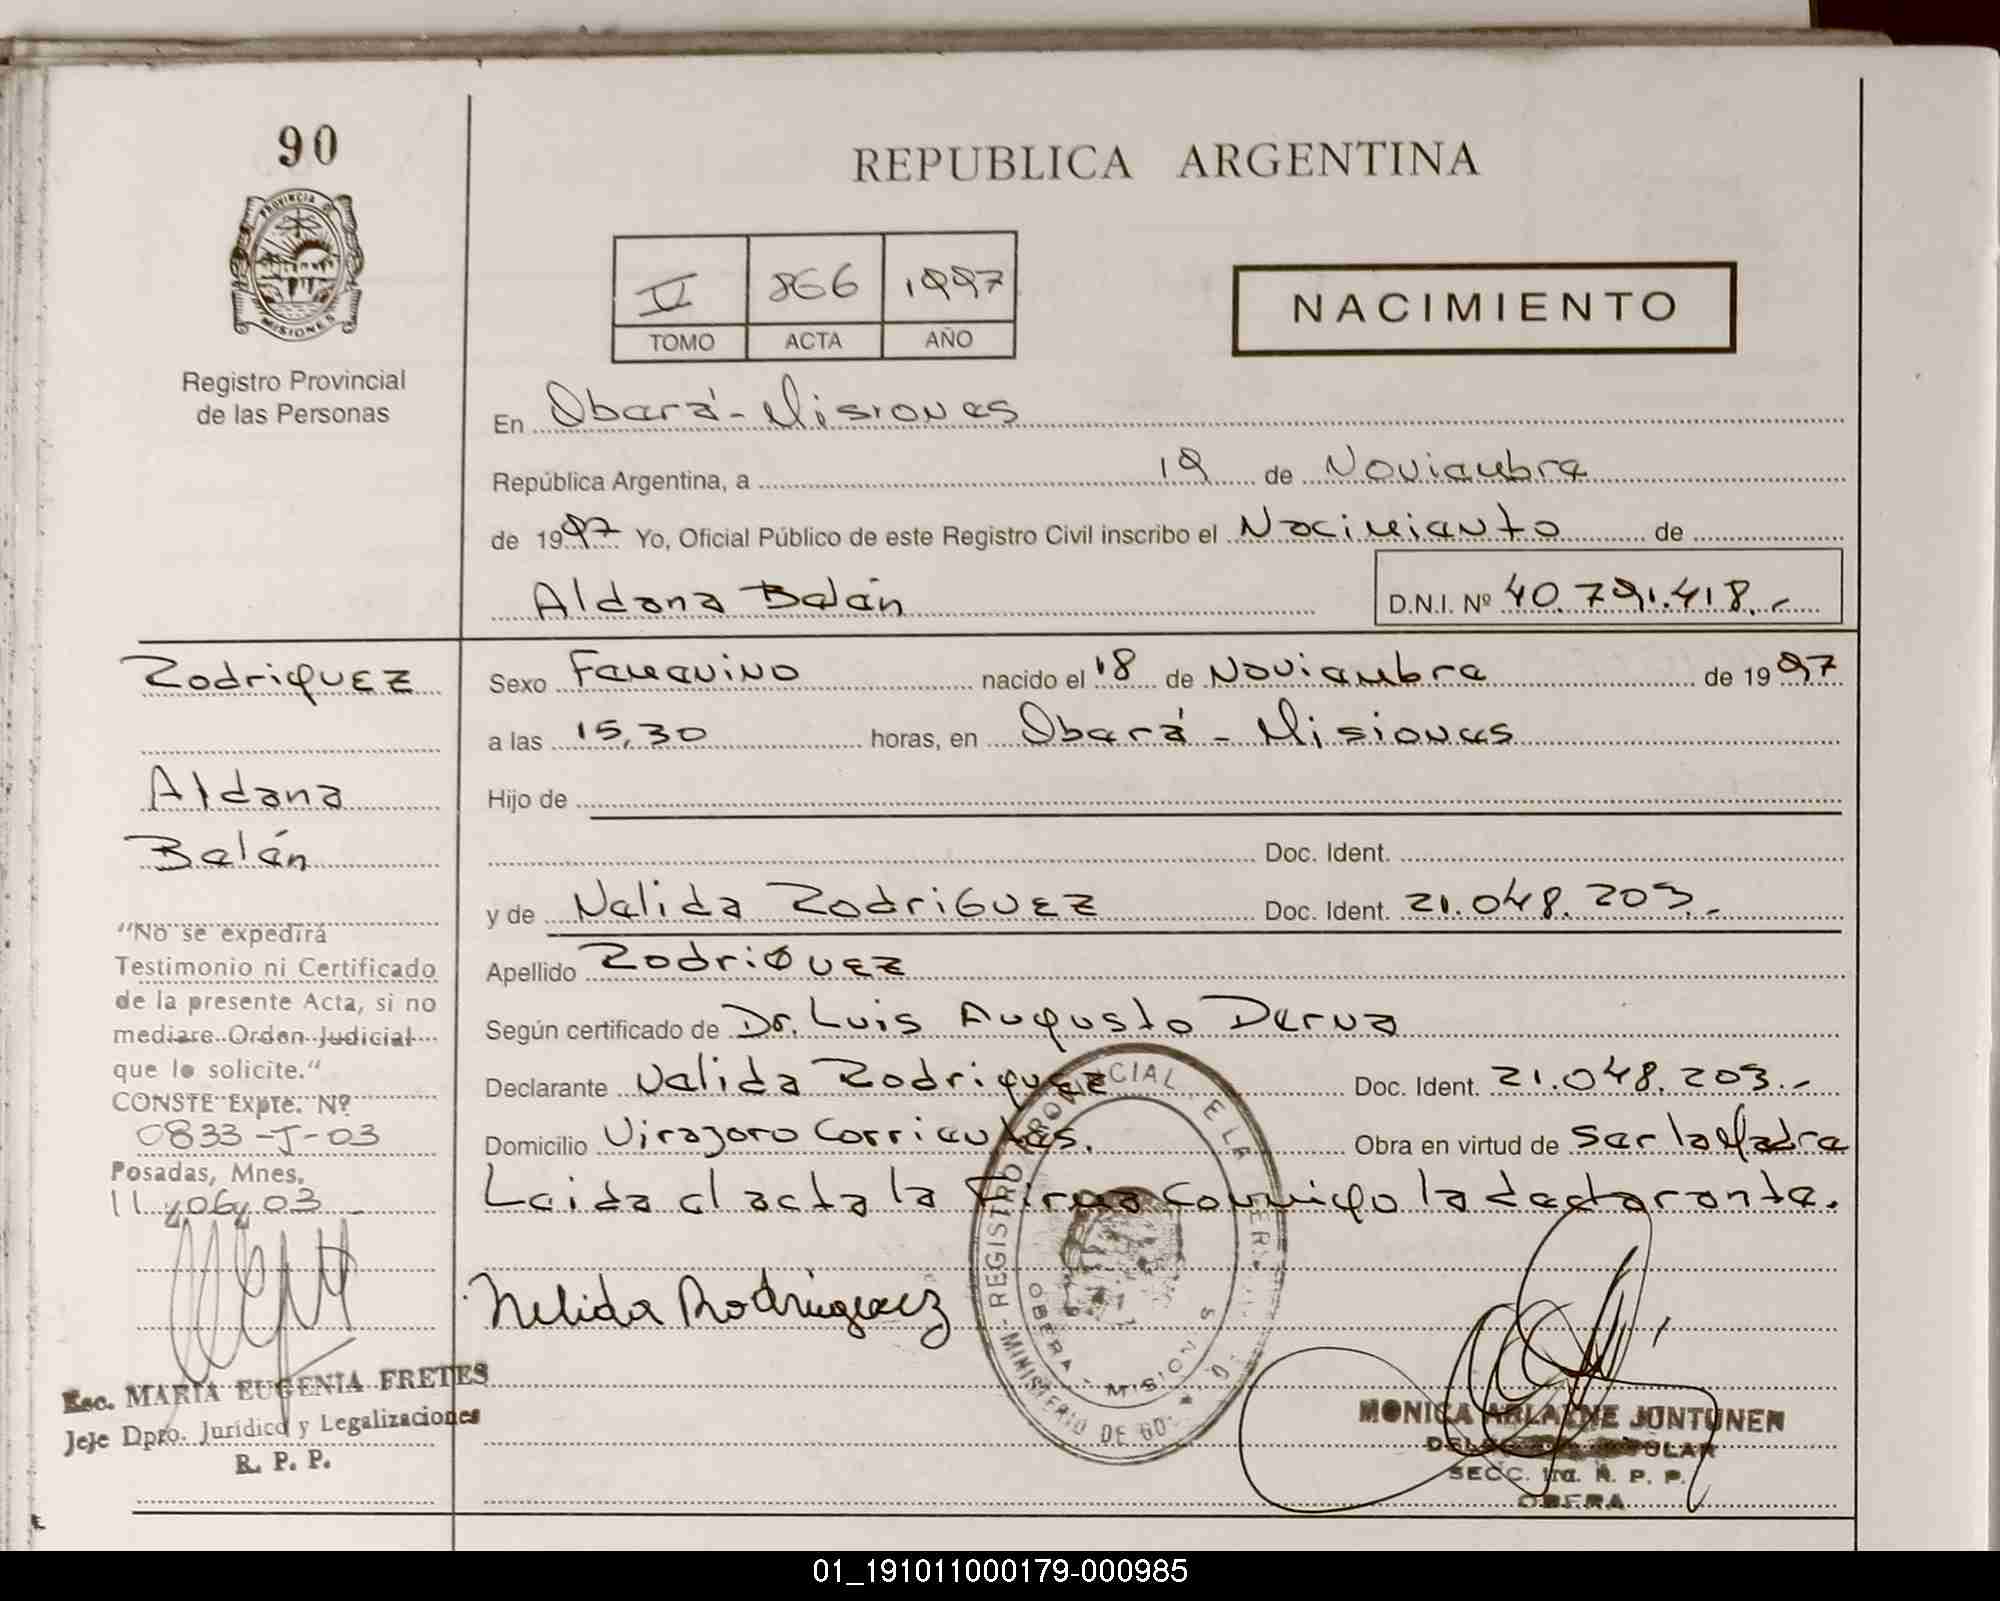 90
PROVINCIA D
MISIONES
Registro Provincial
de las Personas
REPUBLICA ARGENTINA
II 866 1997
TOMO ACTA AÑO
NACIMIENTO
En Oberá - Misiones
República Argentina, a 19 de Noviembre
de 1997 Yo, Oficial Público de este Registro Civil inscribo el Nacimiento de
Aldana Belén D.N.I. Nº 40.791.418.-
Rodriguez
Aldana
Belén
Sexo Femenino nacido el 18 de Noviembre de 1997
a las 15,30 horas, en Oberá - Misiones
Hijo de
Doc. Ident.
y de Nelida Rodriguez Doc. Ident. 21.048.203.-
Apellido Rodriguez
Según certificado de Dr. Luis Augusto Derna
Declarante Nelida Rodriguez Doc. Ident. 21.048.203.-
Domicilio Virasoro Corrientes. Obra en virtud de ser la Madre
Leida el acta la Firma conmigo la declarante.
Nelida Rodriguez
"No se expedirá
Testimonio ni Certificado
de la presente Acta, si no
mediare Orden Judicial
que lo solicite."
CONSTE Expte. Nº
0833-J-03
Posadas, Mnes.
11 06 03
Esc. MARIA EUGENIA FRETES
Jefe Dpto. Jurídico y Legalizaciones
R. P. P.
REGISTRO PROVINCIAL E LA PER
MINISTERIO DE GO
OBERA - MISION S
MONICA ARLAINE JUNTUNEN
SECC. 1ra. R. P. P.
OBERA
01_191011000179-000985